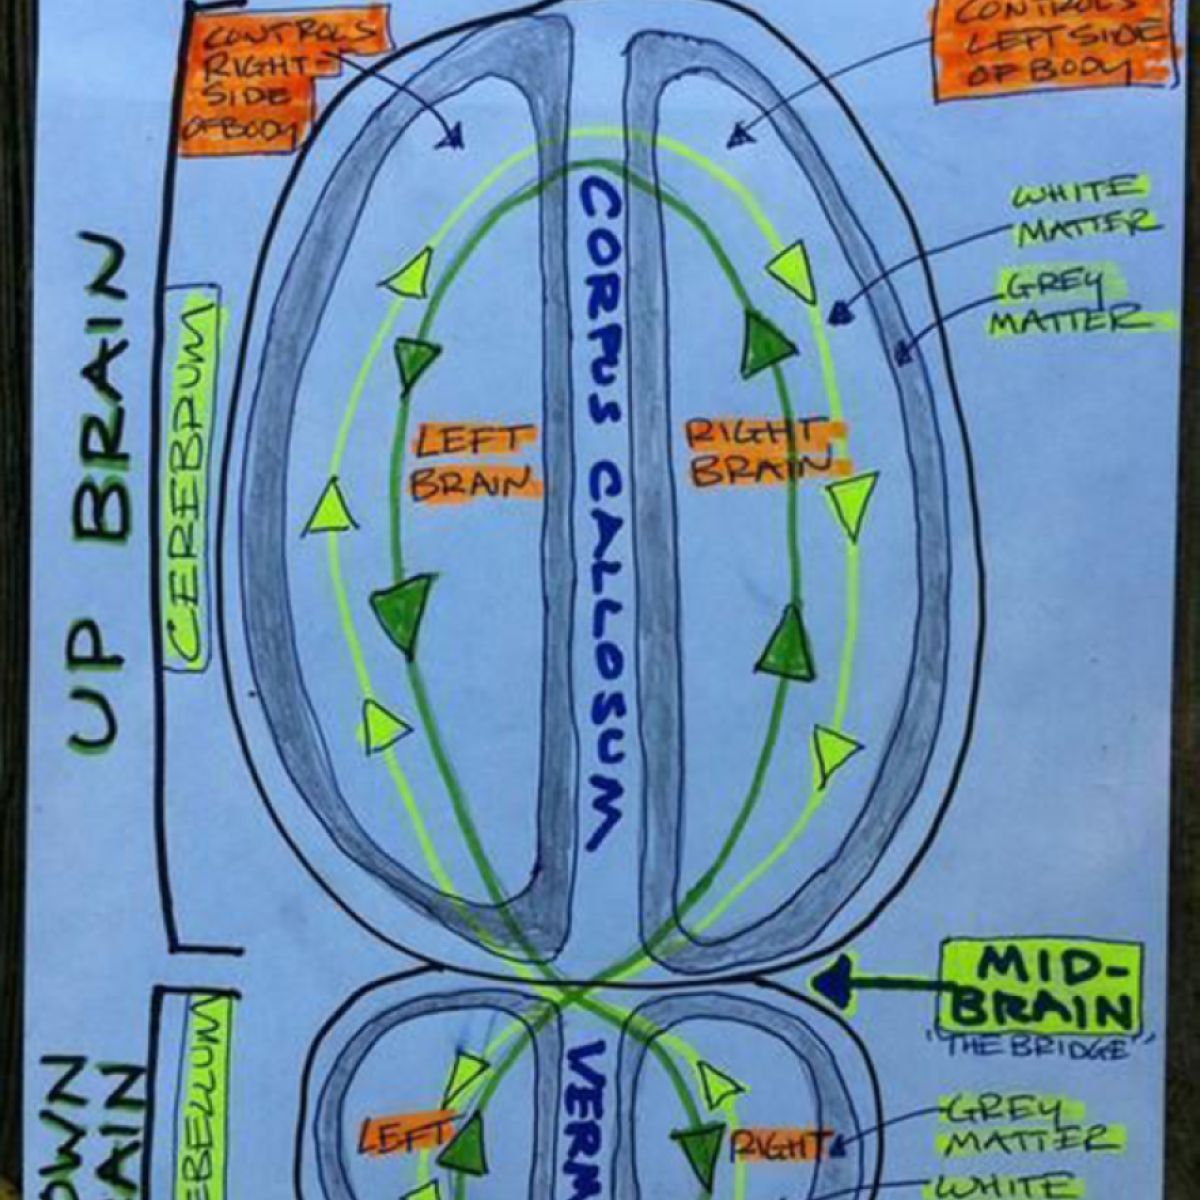 CONTROLS
RIGHT
SIDE
OF BODY
CONTROLS
LEFT SIDE
OF BODY
WHITE
MATTER
GREY
MATTER
UP BRAIN
CEREBRUM
CORPUS CALLOSUM
LEFT
BRAIN
RIGHT
BRAIN
MID-
BRAIN
"THE BRIDGE"
OWN
AIN
EBELLUM
VERM
LEFT
RIGHT
GREY
MATTER
WHITE